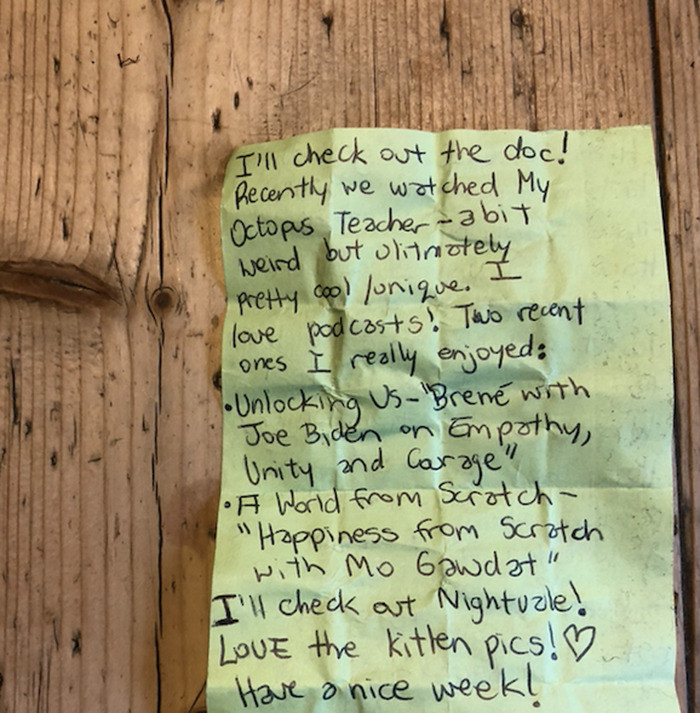 I'll check out the doc!
Recently we watched My
Octopus Teacher - a bit
weird but ulitmately
pretty cool/unique. I
love podcasts! Two recent
ones I really enjoyed:
• Unlocking Us - "Brené with
Joe Biden on Empathy,
Unity and Courage"
• A World from Scratch -
"Happiness from Scratch
with Mo Gawdat"
I'll check out Nightvale!
LOVE the kitten pics! ♡
Have a nice week!